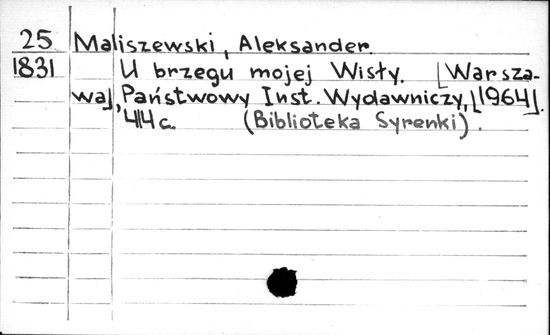 25 Maliszewski, Aleksander.
1831 U brzegu mojej Wisły. [Warsza-
wa], Państwowy Inst. Wydawniczy, [1964].
414 c. (Biblioteka Syrenki).